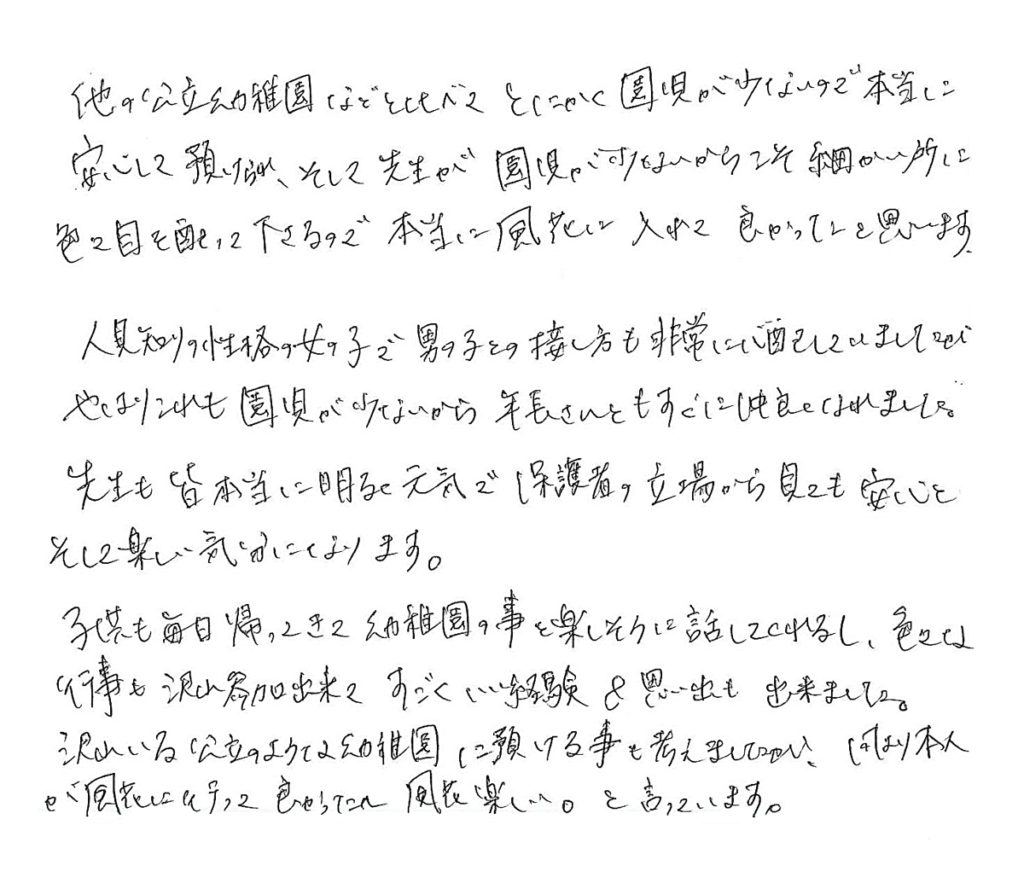 他の公立幼稚園などとくらべて とにかく園児が少ないので本当に
安心して預けられ、そして先生が 園児が少ないからこそ細かい所に
色々目を配って下さるので 本当に風花に入れて 良かったと思います。
人見知りの性格の女の子で 男の子との接し方も非常に心配していましたが
やはりこれも園児が少ないから 年長さんともすぐに仲良くなれました。
先生も皆本当に明るく元気で 保護者の立場から見ても 安心と
そして楽しい気分になります。
子供も毎日帰ってきて幼稚園の事を楽しそうに話してくれるし、色々な
行事も沢山参加出来て すごくいい経験と思い出も 出来ました。
沢山いる公立のような幼稚園に預ける事も考えましたが、やはり本人
が風花に行って良かった 風花楽しい。と言っています。